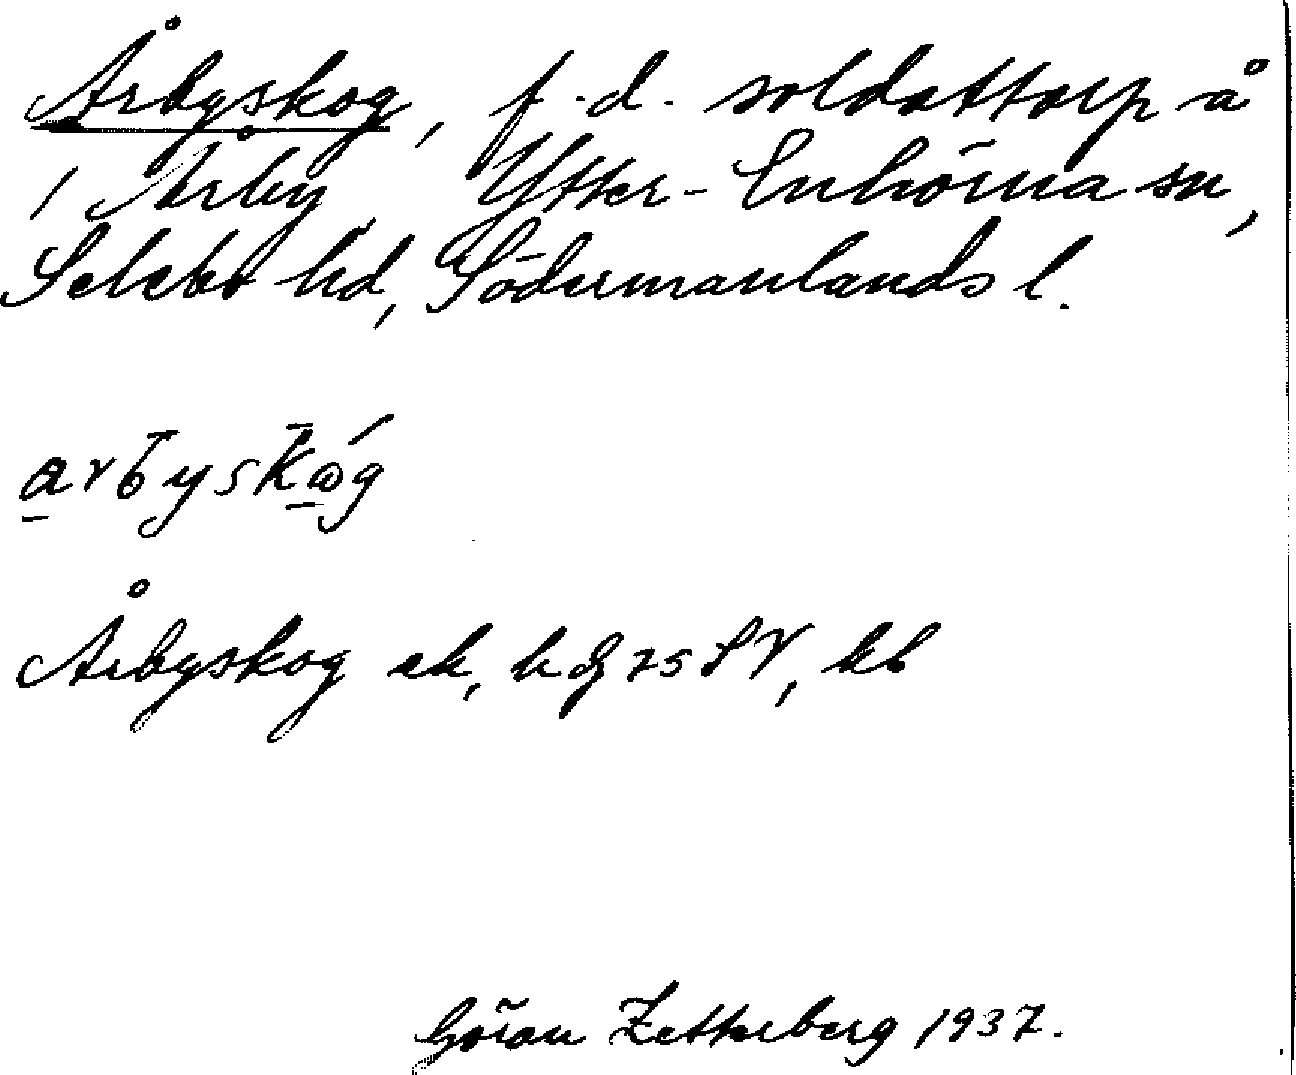 Årbyskog, f.d. soldattorp å
1 Årby, Ytter-Enhörna sn,
Selebo hd, Södermanlands l.
arbyskωg
Årbyskog ek, hdg 75 SV, kb
Göran Zetterberg 1937.